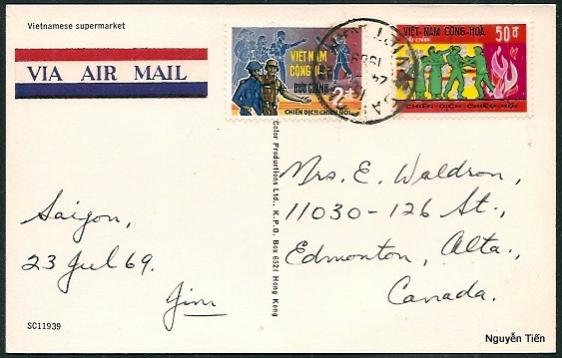 Vietnamese supermarket
VIA AIR MAIL
VIỆT NAM
CỘNG HÒA
BƯU CHÍNH
2đ
CHIẾN DỊCH CHIÊU HỒI
VIỆT-NAM CỘNG-HÒA
BƯU-CHÍNH
50đ
CHIẾN-DỊCH CHIÊU-HỒI
Saigon,
23 Jul 69.
Jim
Color Productions Ltd., K.P.O. Box 6521 Hong Kong
Mrs. E. Waldron,
11030-126 St.,
Edmonton, Alta.,
Canada.
SC11939
Nguyễn Tiến